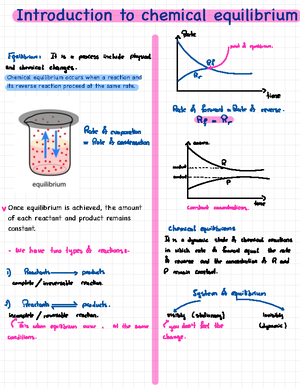 Introduction to chemical equilibrium
Equilibrium: It is a process include physical
and chemical changes.
Chemical equilibrium occurs when a reaction and
its reverse reaction proceed at the same rate.
Rate of evaporation
= Rate of condensation
equilibrium
Once equilibrium is achieved, the amount
of each reactant and product remains
constant.
- We have two types of reactions:-
1) Reactants → products
complete / irreversible reaction
2) Reactants → products.
incomplete / reversible reaction
This when equilibrium occur. at the same
conditions.
Rate
point of equilibrium.
Rf
Rr
time
Rate of forward = Rate of reverse.
Rf = Rr
R
P
time
Constant concentrations.
Chemical equilibrium:
It is a dynamic state of chemical reactions
in which rate of forward equal the rate
of reverse and the concentration of R and
P remain constant.
System of equilibrium
visibly (stationary)
invisibly
(dynamic)
you don't feel the
change.